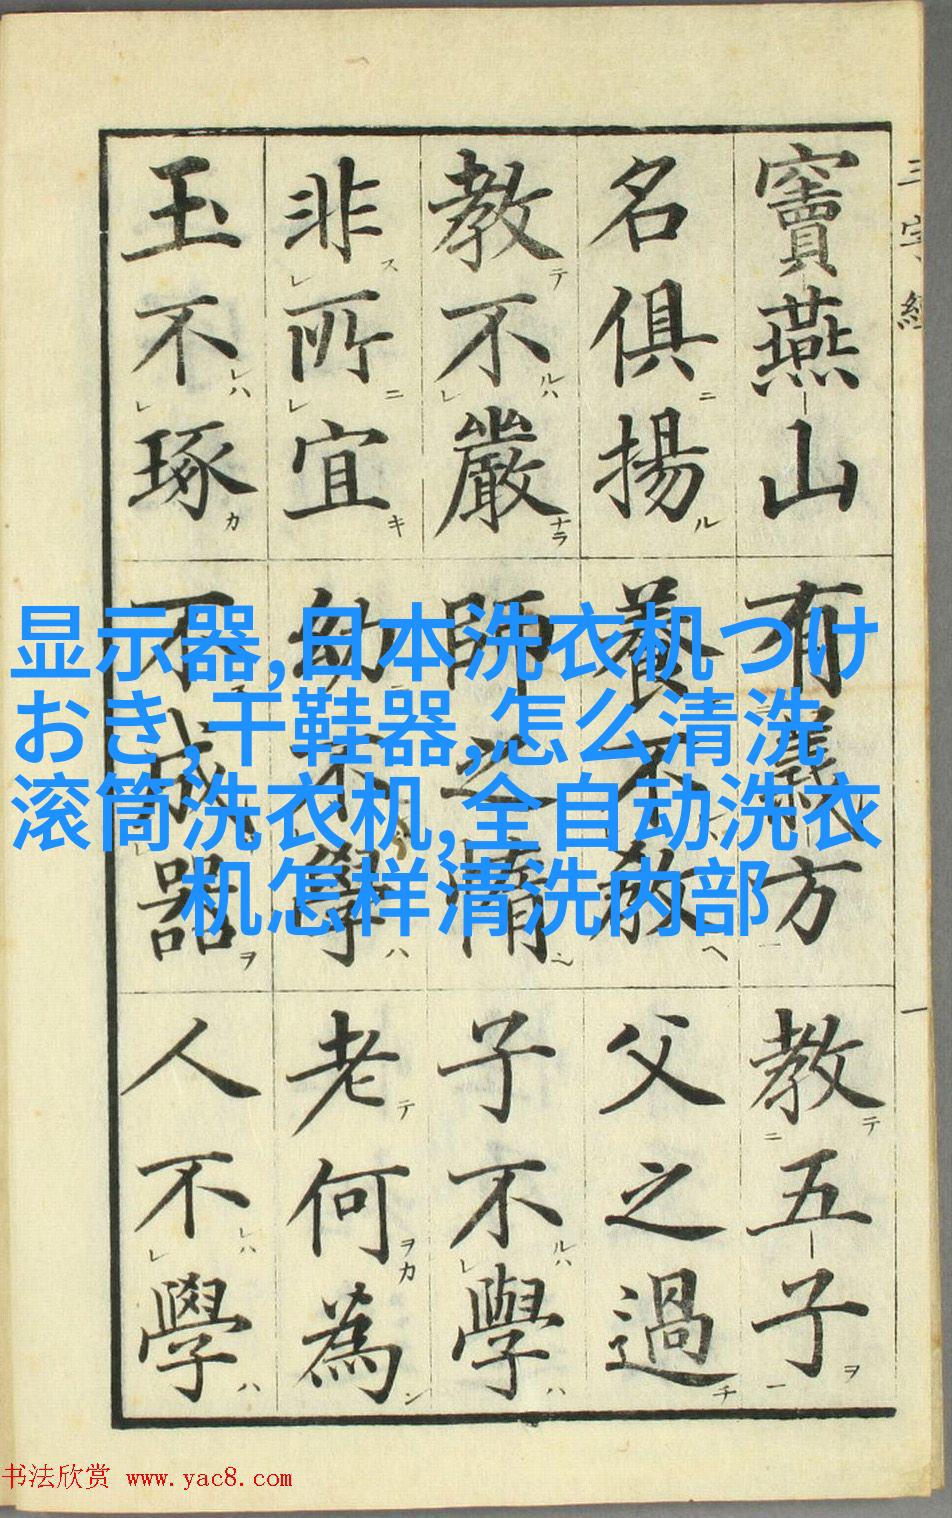 三字經
竇燕山有義方教五子
名俱揚養不教父之過
教不嚴師之惰子不學
非所宜幼不學老何為
玉不琢不成器人不學
一
显示器,日本洗衣机つけ
おき,干鞋器,怎么清洗
滚筒洗衣机,全自动洗衣
机怎样清洗内部
书法欣赏 www.yac8.com